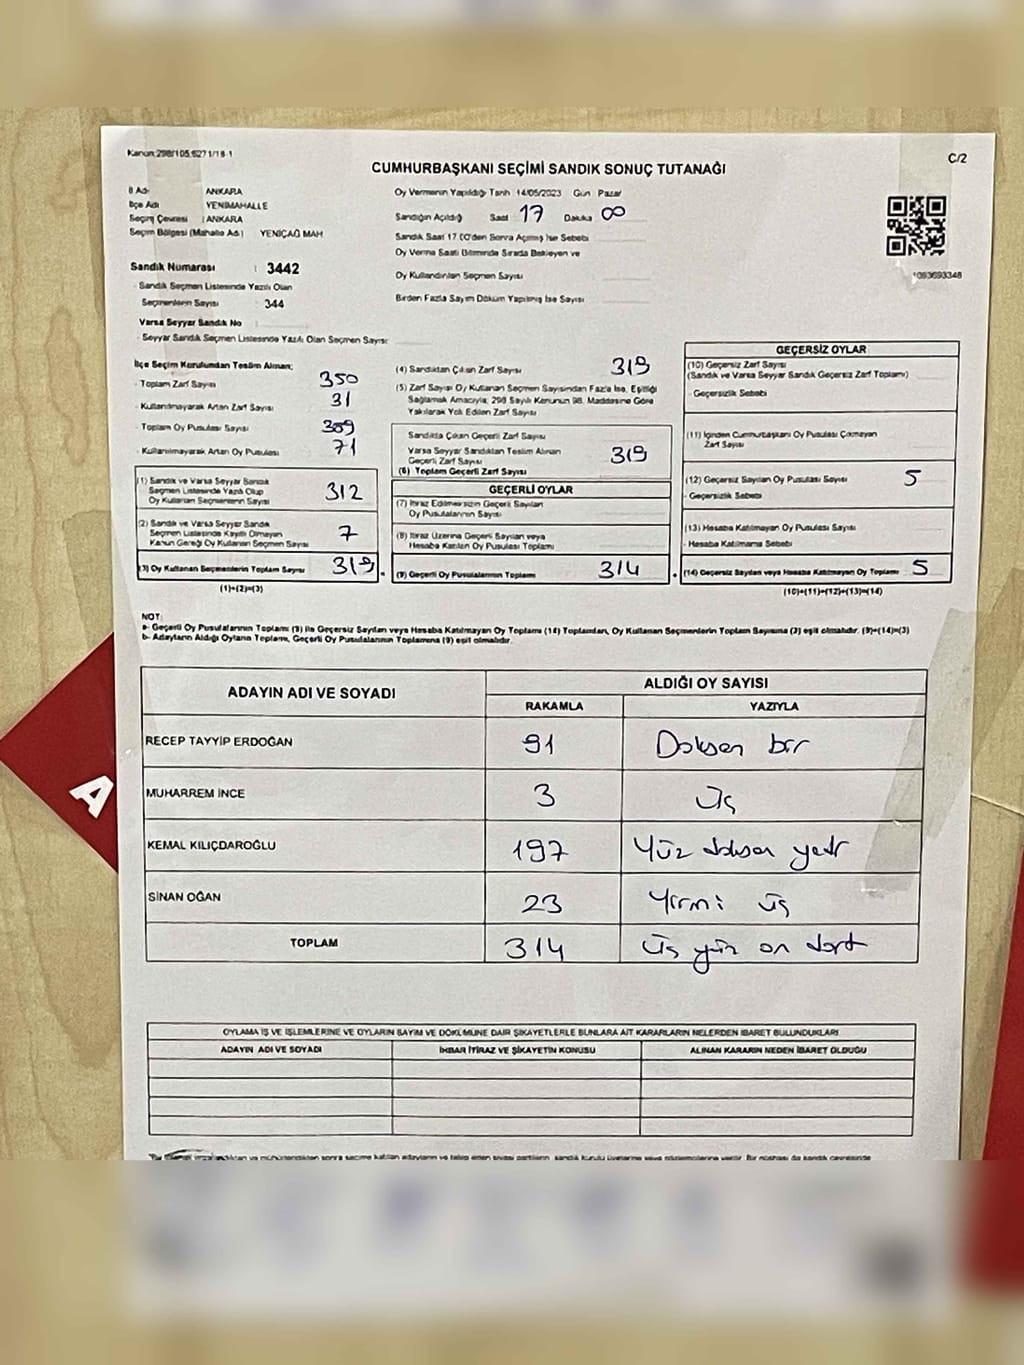 Kanun:298/105;6271/18-1
C/2
CUMHURBAŞKANI SEÇİMİ SANDIK SONUÇ TUTANAĞI
İl Adı ANKARA
İlçe Adı YENİMAHALLE
Seçim Çevresi : ANKARA
Seçim Bölgesi (Mahalle Adı) YENİÇAĞ MAH
Sandık Numarası : 3442
Sandık Seçmen Listesinde Yazılı Olan
Seçmenlerin Sayısı : 344
Varsa Seyyar Sandık No :
- Seyyar Sandık Seçmen Listesinde Yazılı Olan Seçmen Sayısı:
Oy Vermenin Yapıldığı Tarih 14/05/2023 Gün Pazar
Sandığın Açıldığı Saat 17 Dakika 00
Sandık Saat 17.00'den Sonra Açılmış İse Sebebi
Oy Verme Saati Bitiminde Sırada Bekleyen ve
Oy Kullandırılan Seçmen Sayısı
Birden Fazla Sayım Döküm Yapılmış İse Sayısı
1093693348
İlçe Seçim Kurulundan Teslim Alınan;
- Toplam Zarf Sayısı 350
- Kullanılmayarak Artan Zarf Sayısı 31
- Toplam Oy Pusulası Sayısı
- Kullanılmayarak Artan Oy Pusulası 71
(1) Sandık ve Varsa Seyyar Sandık
Seçmen Listesinde Yazılı Olup
Oy Kullanan Seçmenlerin Sayısı 312
(2) Sandık ve Varsa Seyyar Sandık
Seçmen Listesinde Kayıtlı Olmayan
Kanun Gereği Oy Kullanan Seçmen Sayısı 7
(3) Oy Kullanan Seçmenlerin Toplam Sayısı 319
(1)+(2)=(3)
(4) Sandıktan Çıkan Zarf Sayısı 319
(5) Zarf Sayısı Oy Kullanan Seçmen Sayısından Fazla İse, Eşitliği
Sağlamak Amacıyla; 298 Sayılı Kanunun 98. Maddesine Göre
Yakılarak Yok Edilen Zarf Sayısı
Sandıkta Çıkan Geçerli Zarf Sayısı
Varsa Seyyar Sandıktan Teslim Alınan
Geçerli Zarf Sayısı 319
(6) Toplam Geçerli Zarf Sayısı
GEÇERLİ OYLAR
(7) İtiraz Edilmeksizin Geçerli Sayılan
Oy Pusulalarının Sayısı
(8) İtiraz Üzerine Geçerli Sayılan veya
Hesaba Katılan Oy Pusulası Toplamı
(9) Geçerli Oy Pusulalarının Toplamı 314
GEÇERSİZ OYLAR
(10) Geçersiz Zarf Sayısı
(Sandık ve Varsa Seyyar Sandık Geçersiz Zarf Toplamı)
- Geçersizlik Sebebi
(11) İçinden Cumhurbaşkanı Oy Pusulası Çıkmayan
Zarf Sayısı
(12) Geçersiz Sayılan Oy Pusulası Sayısı 5
- Geçersizlik Sebebi
(13) Hesaba Katılmayan Oy Pusulası Sayısı
- Hesaba Katılmama Sebebi
(14) Geçersiz Sayılan veya Hesaba Katılmayan Oy Toplamı 5
(10)+(11)+(12)+(13)=(14)
NOT:
a- Geçerli Oy Pusulalarının Toplamı (9) ile Geçersiz Sayılan veya Hesaba Katılmayan Oy Toplamı (14) Toplamları, Oy Kullanan Seçmenlerin Toplam Sayısına (3) eşit olmalıdır. (9)+(14)=(3)
b- Adayların Aldığı Oyların Toplamı, Geçerli Oy Pusulalarının Toplamına (9) eşit olmalıdır.
ADAYIN ADI VE SOYADI ALDIĞI OY SAYISI
RAKAMLA YAZIYLA
RECEP TAYYİP ERDOĞAN 91 Doksan bir
MUHARREM İNCE 3 Üç
KEMAL KILIÇDAROĞLU 197 Yüz doksan yedi
SİNAN OĞAN 23 Yirmi üç
TOPLAM 314 Üç yüz on dört
OYLAMA İŞ VE İŞLEMLERİNE VE OYLARIN SAYIM VE DÖKÜMÜNE DAİR ŞİKAYETLERLE BUNLARA AİT KARARLARIN NELERDEN İBARET BULUNDUKLARI
ADAYIN ADI VE SOYADI İHBAR İTİRAZ VE ŞİKAYETİN KONUSU ALINAN KARARIN NEDEN İBARET OLDUĞU
A